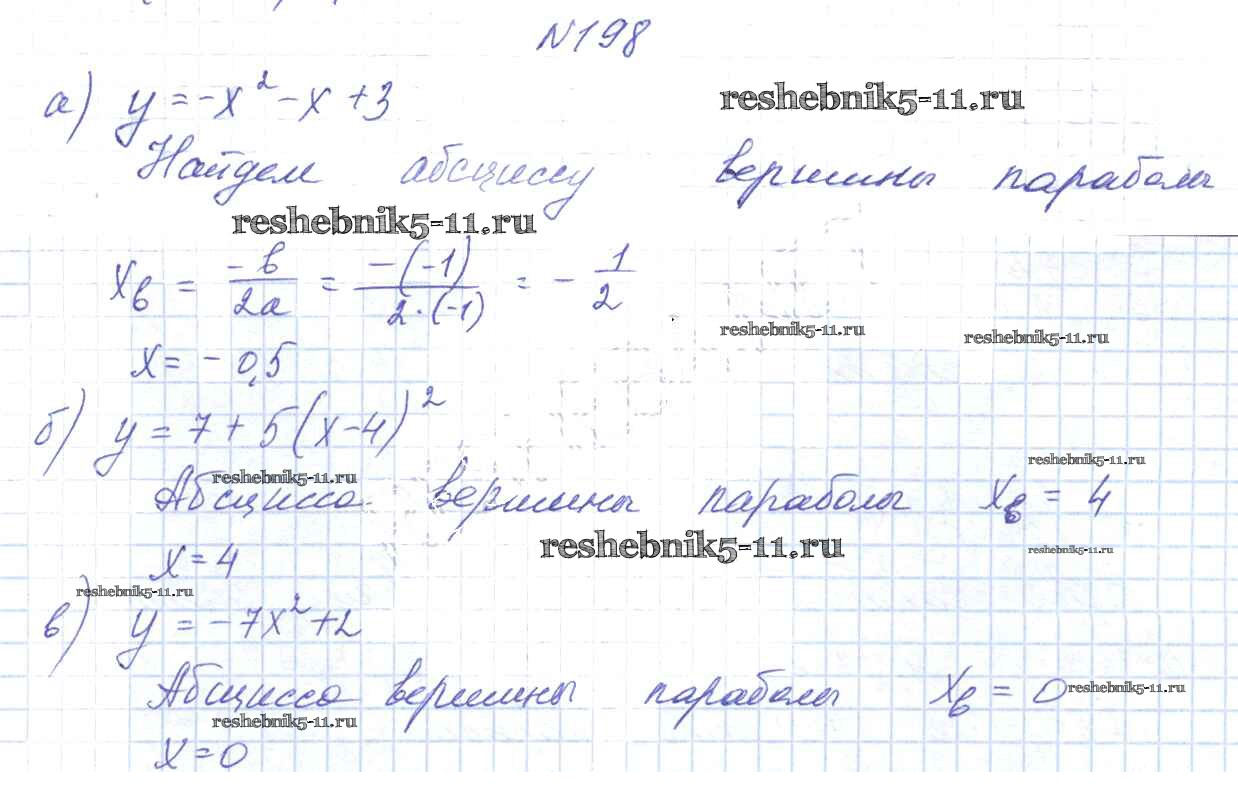 N198
а) y = -x² - x + 3
reshebnik5-11.ru
Найдем абсциссу вершины параболы
reshebnik5-11.ru
xв = -в/2a = -(-1)/2·(-1) = -1/2
reshebnik5-11.ru
reshebnik5-11.ru
x = -0,5
б) y = 7 + 5(x-4)²
reshebnik5-11.ru
reshebnik5-11.ru
Абсцисса вершины параболы xв = 4
reshebnik5-11.ru
reshebnik5-11.ru
x = 4
reshebnik5-11.ru
в) y = -7x² + 2
Абсцисса вершины параболы xв = 0
reshebnik5-11.ru
reshebnik5-11.ru
x = 0